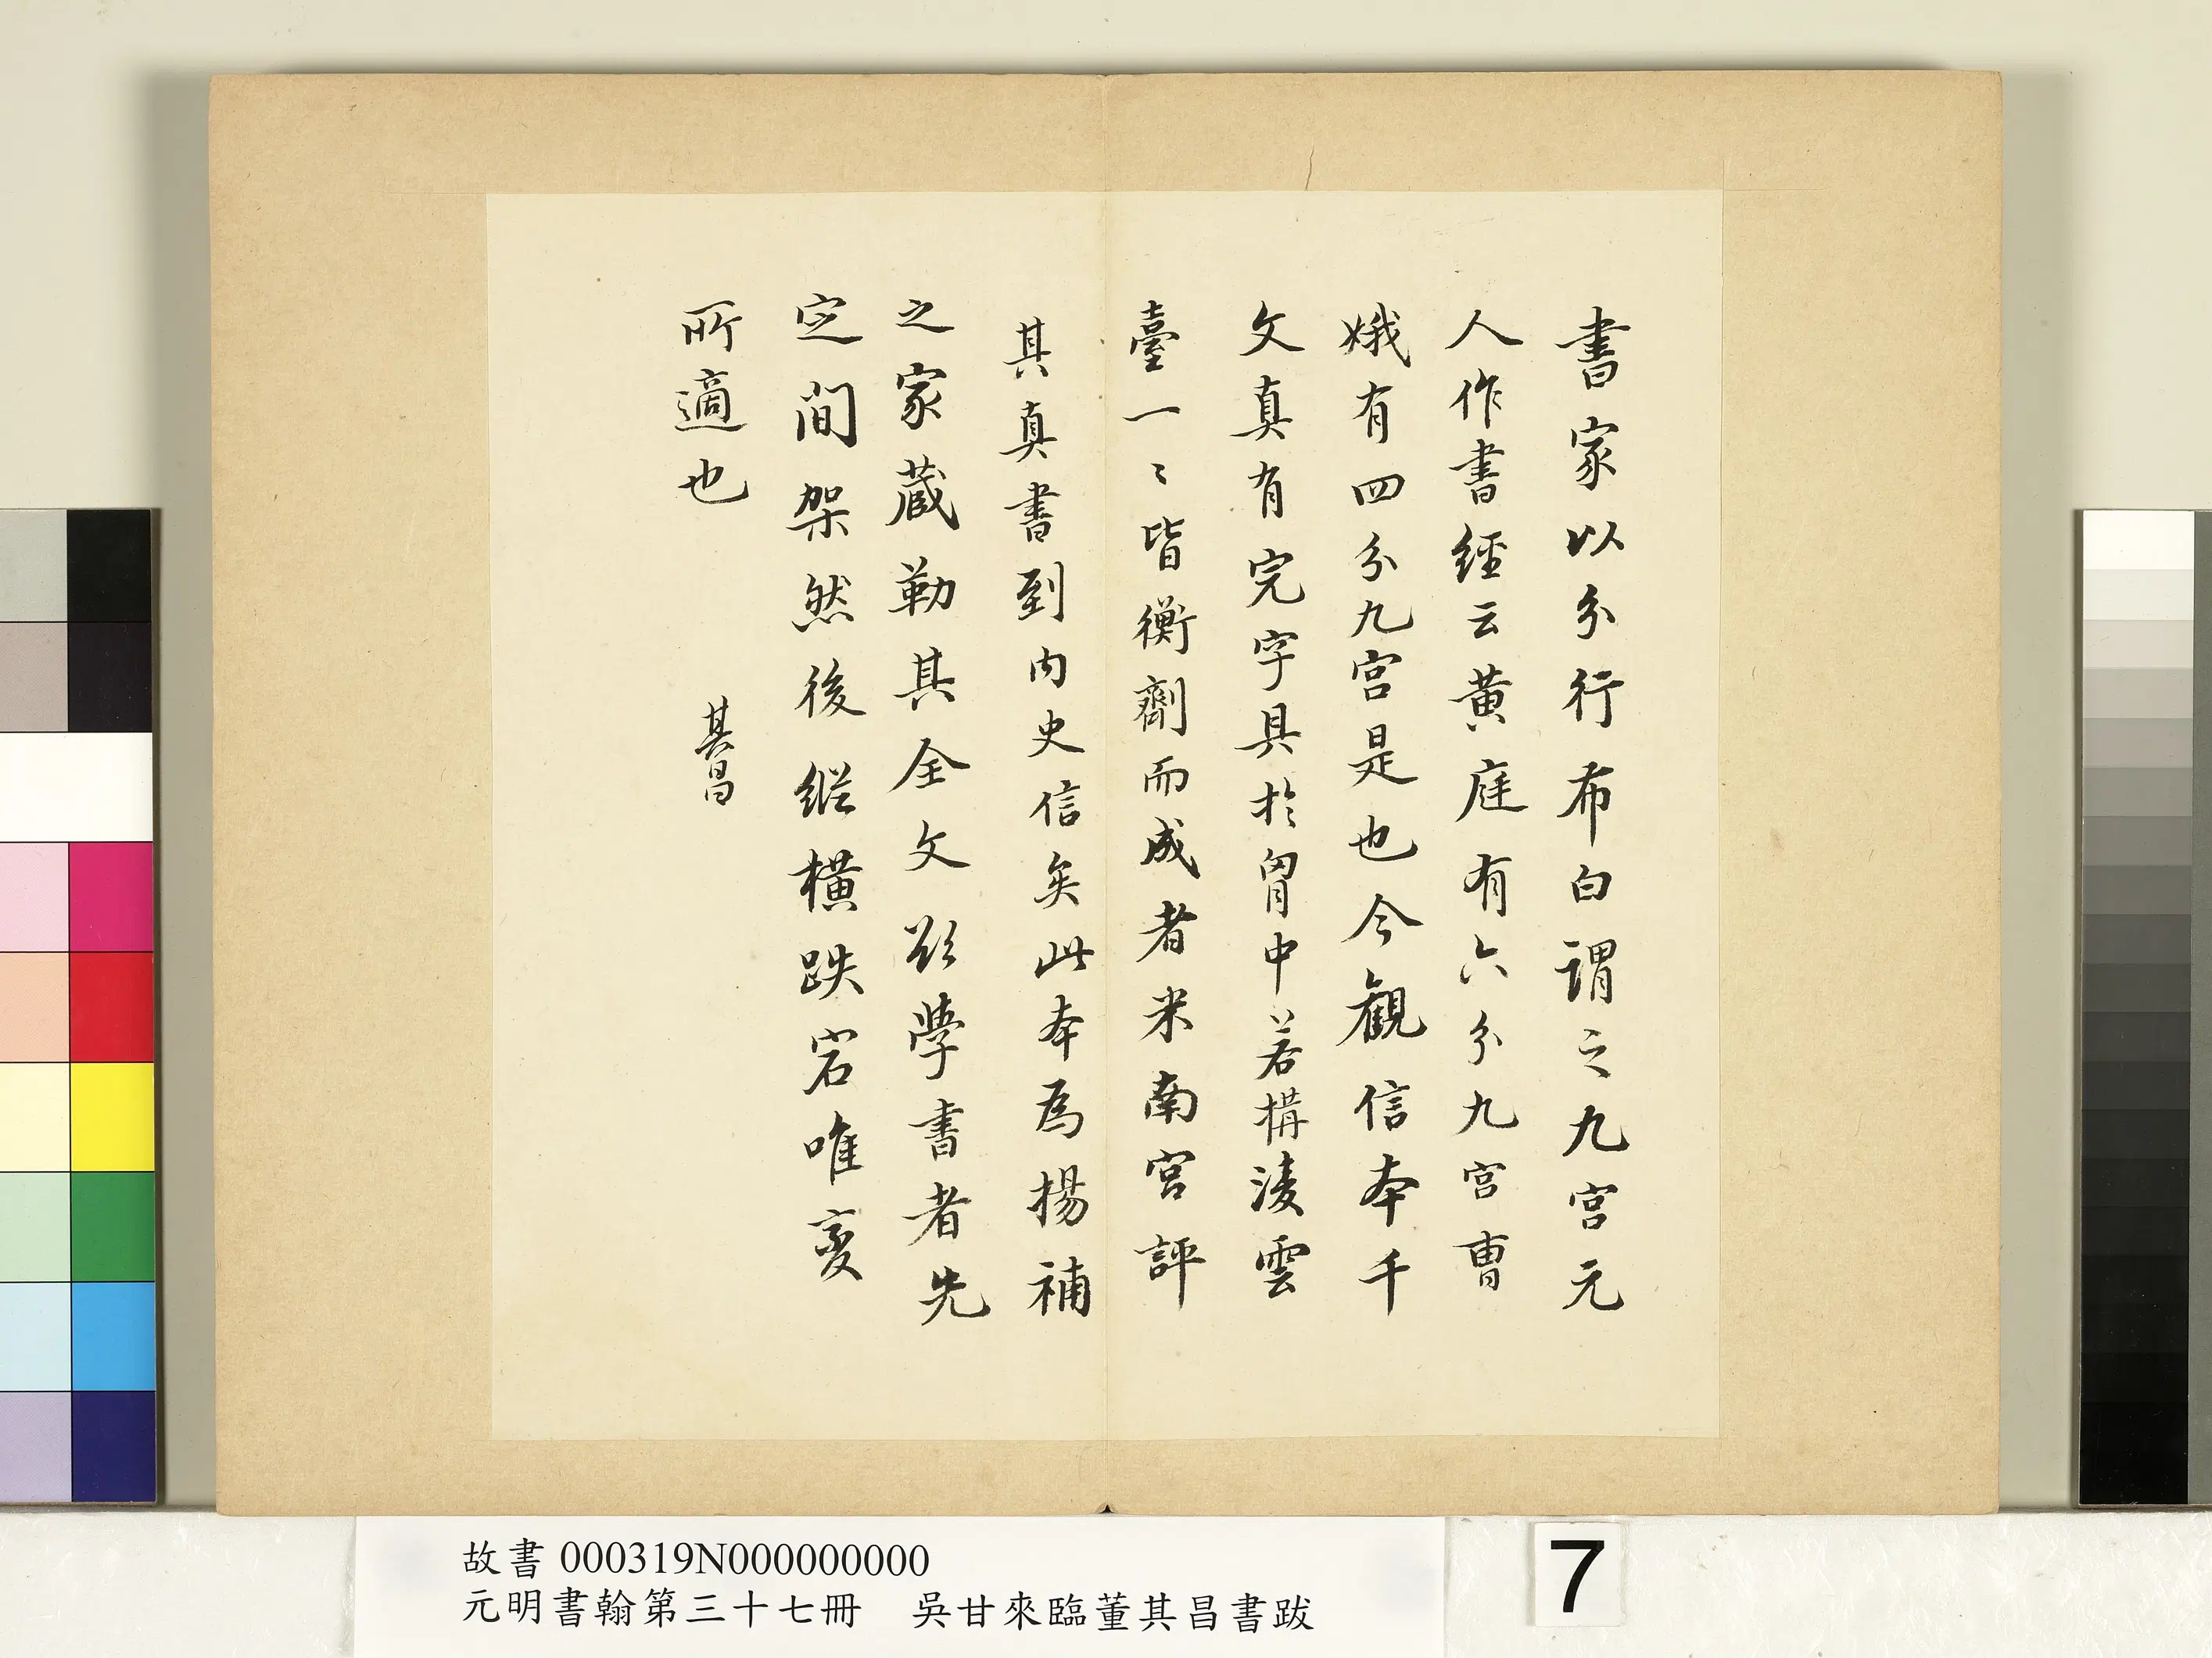 書家以分行布白謂之九宮元
人作書經云黃庭有六分九宮曹
娥有四分九宮是也今觀信本千
文真有完字具於胷中若構淩雲
臺一〻皆衡劑而成者米南宮評
其真書到內史信矣此本為楊補
之家蔵勒其全文欲學書者先
定間架然後縱橫跌宕唯變
所適也　其昌
故書 000319N000000000
元明書翰第三十七冊　吳甘來臨董其昌書跋
7